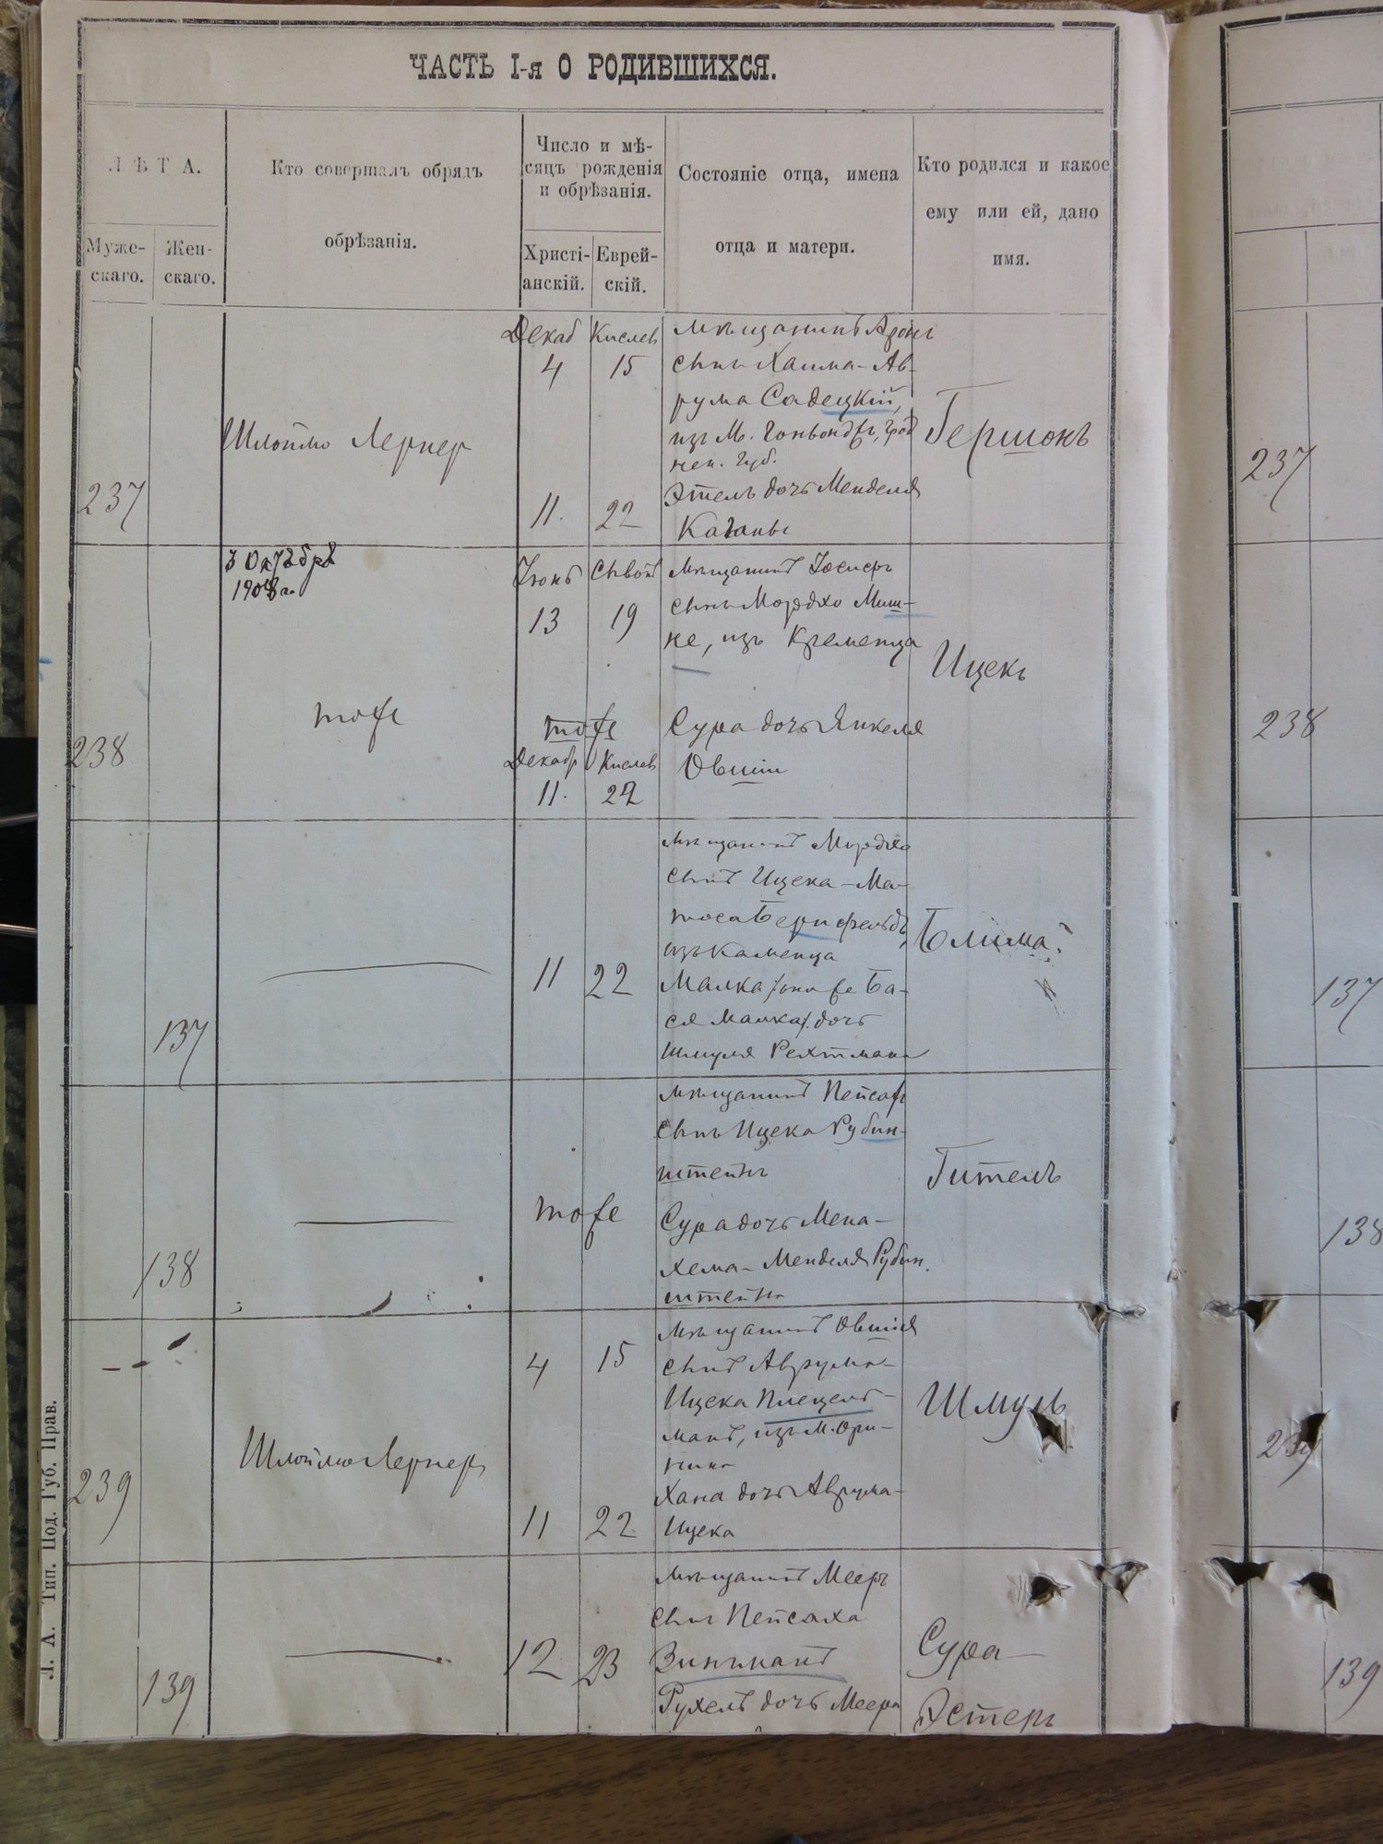 ЧАСТЬ I-я О РОДИВШИХСЯ.
ЛѢТА.
Муже-
скаго.
Жен-
скаго.
Кто совершалъ обрядъ
обрѣзанія.
Число и мѣ-
сяцъ рожденія
и обрѣзанія.
Христі-
анскій.
Еврей-
скій.
Состояніе отца, имена
отца и матери.
Кто родился и какое
ему или ей, дано
имя.
237
Шлоймо Лернер
Декаб Кислев
4 15
11. 22
Мѣщанинъ Арон
сынъ Хаима-Ав-
рума Садецкій,
изъ М. Гоньондзъ, Грод
нен. Губ.
Этель дочь Менделя
Каганы
Гершонъ
237
238
3 Октября
1908 г.
тоже
Іюнь Сивон
13 19
тоже
Декабр Кислев
11. 22
Мѣщанинъ Іосифъ
сынъ Мордхо Миш-
не, изъ Кременца
Сура дочь Янкеля
Овшіи
Ицекъ
238
137
11 22
Мѣщанинъ Мордхо
сынъ Ицека-Ма-
тоса Бернфельдъ,
изъ Каменца
Малка/она же Ба-
ся Малка/ дочь
Шмуля Рехтмана
Блима
137
138
тоже
Мѣщанинъ Пейсах
сынъ Ицека Рубин-
штейнъ
Сура дочь Мена-
хема-Менделя Рубин.
штейна
Гитель
138
239
Шлоймо Лернер
4 15
11 22
Мѣщанинъ Овшія
сынъ Аврума-
Ицека Плецель-
манъ, изъ М. Ори-
нина
Хана дочь Аврума-
Ицека
Шмуль
239
139
12 23
Мѣщанинъ Мееръ
сынъ Пейсаха
Зинманъ
Рухель дочь Меера
Сура-
Эстеръ
139
Л. А. Тип. Под. Губ. Прав.